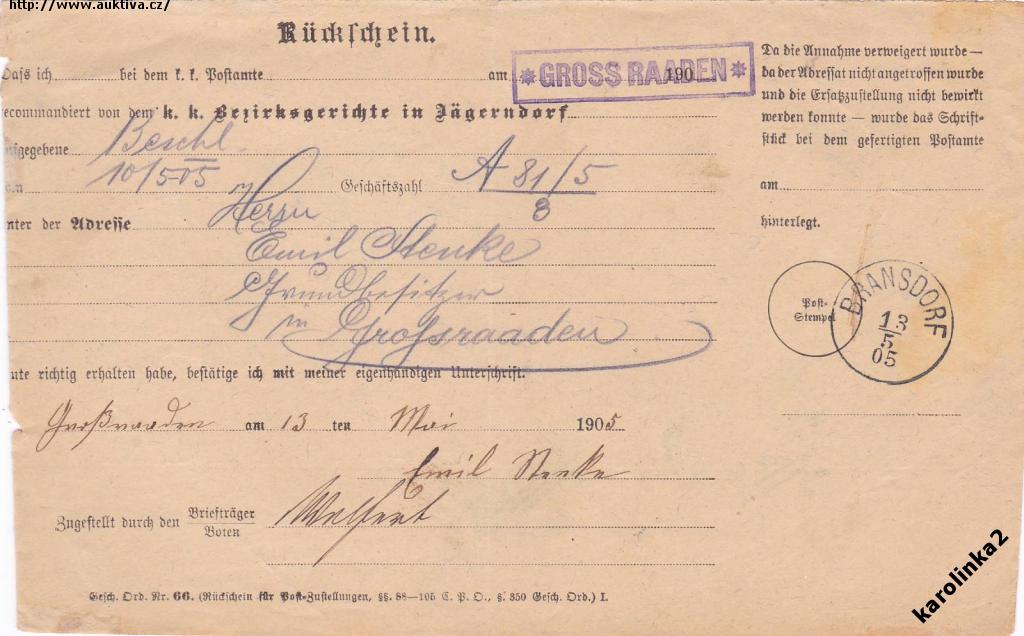 http://www.auktiva.cz/
Rückschein.
Daſs ich bei dem k. k. Postamte am 190
✻ GROSS RAADEN ✻
recommandiert von dem k. k. Bezirksgerichte in Jägerndorf
aufgegebene Beschl.
10/5 05 Geschäftszahl A 81/5
3
unter der Adresse Herrn
Emil Stenke
Grundbesitzer
in Großraaden
heute richtig erhalten habe, bestätige ich mit meiner eigenhändigen Unterschrift.
Großraaden am 13 ten Mai 1905
Emil Stenke
Zugestellt durch den Briefträger
Boten
Gesch. Ord. Nr. 66. (Rückschein für Post-Zustellungen, §§. 88—105 C. P. O., §. 350 Gesch. Ord.) I.
Da die Annahme verweigert wurde —
da der Adressat nicht angetroffen wurde
und die Ersatzzustellung nicht bewirkt
werden konnte — wurde das Schrift-
stück bei dem gefertigten Postamte
am
hinterlegt.
Post-
Stempel
BRANSDORF
13
5
05
karolinka2